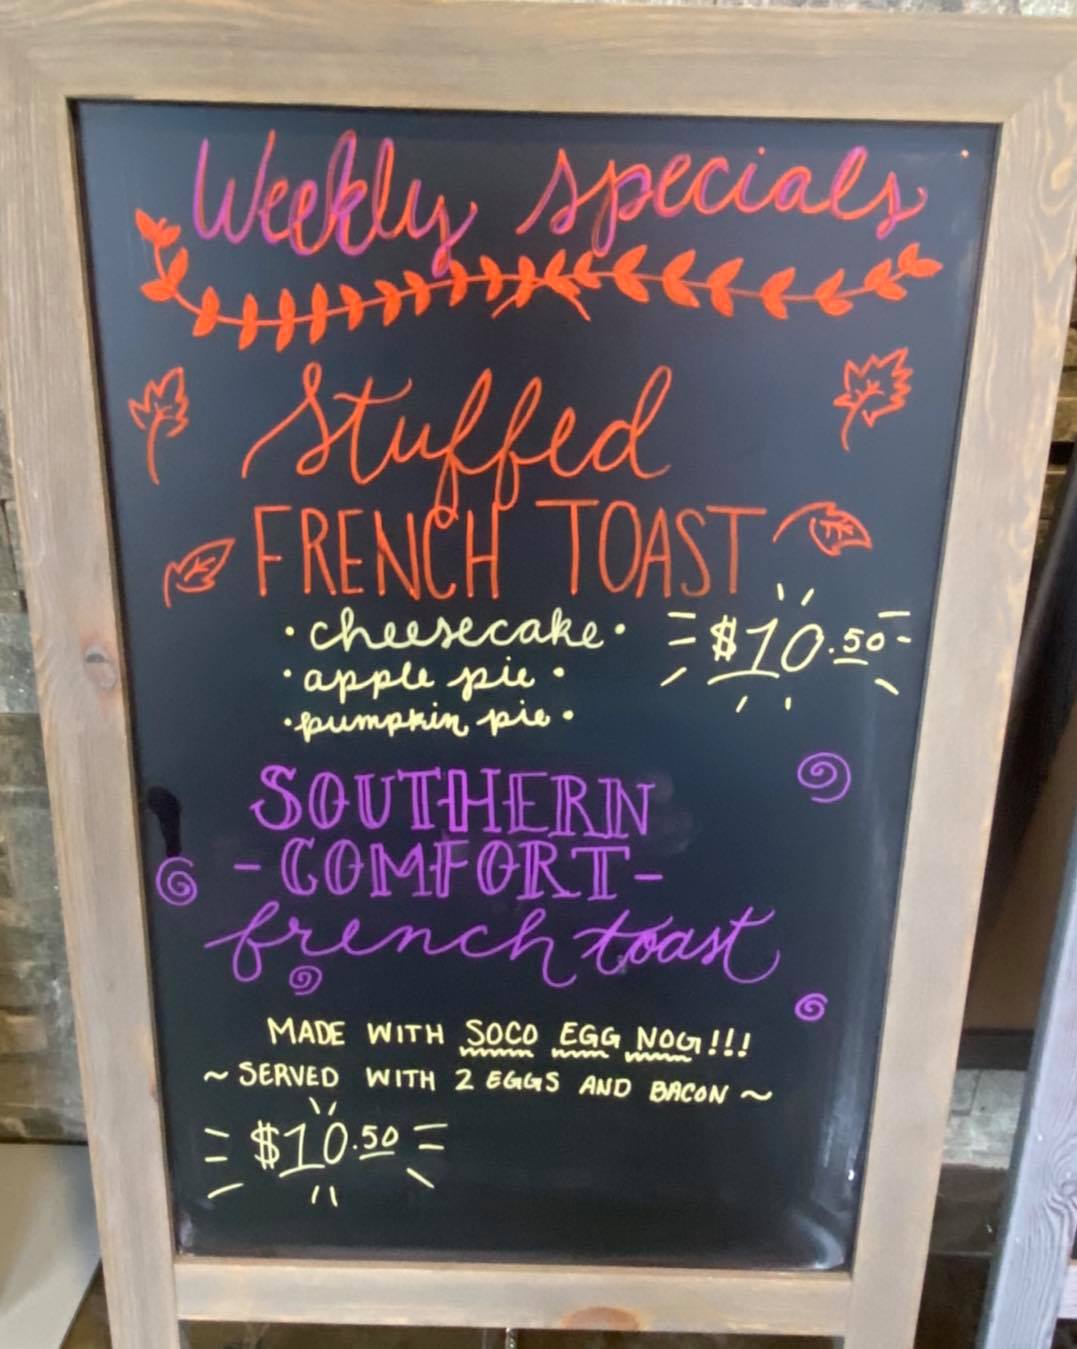 Weekly specials
Stuffed
FRENCH TOAST
• cheesecake •
• apple pie •
• pumpkin pie •
$10.50
SOUTHERN
- COMFORT -
french toast
MADE WITH SOCO EGG NOG!!!
~ SERVED WITH 2 EGGS AND BACON ~
$10.50